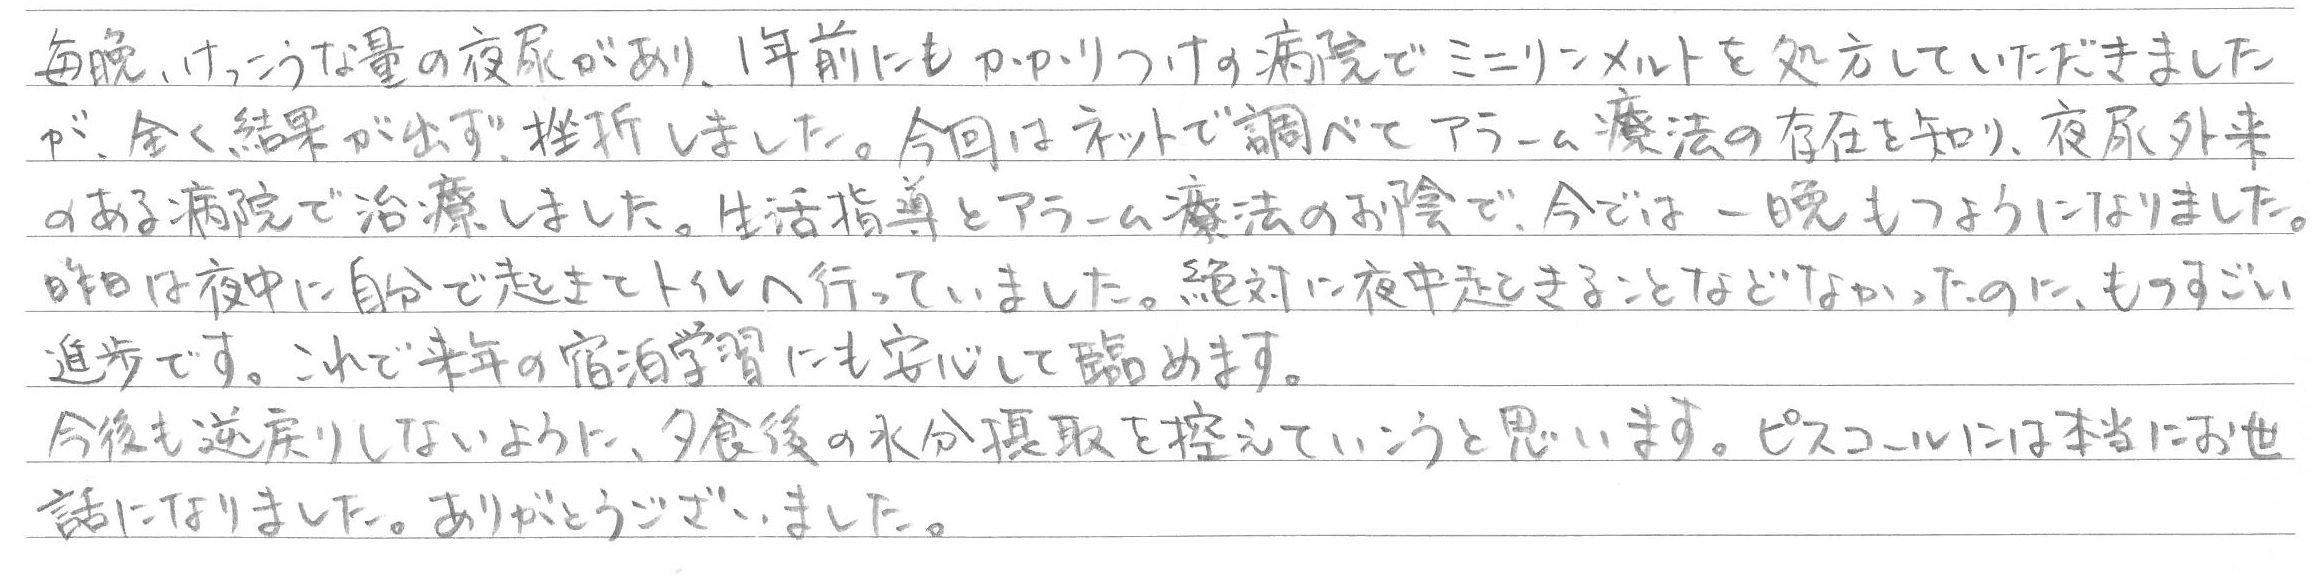 毎晩、けっこうな量の夜尿があり、1年前にもかかりつけの病院でミニリンメルトを処方していただきました
が、全く結果が出ず、挫折しました。今回はネットで調べてアラーム療法の存在を知り、夜尿外来
のある病院で治療しました。生活指導とアラーム療法のお陰で、今では一晩もつようになりました。
昨日は夜中に自分で起きてトイレへ行っていました。絶対に夜中起きることなどなかったのに、ものすごい
進歩です。これで来年の宿泊学習にも安心して臨めます。
今後も逆戻りしないように、夕食後の水分摂取を控えていこうと思います。ピスコールには本当にお世
話になりました。ありがとうございました。